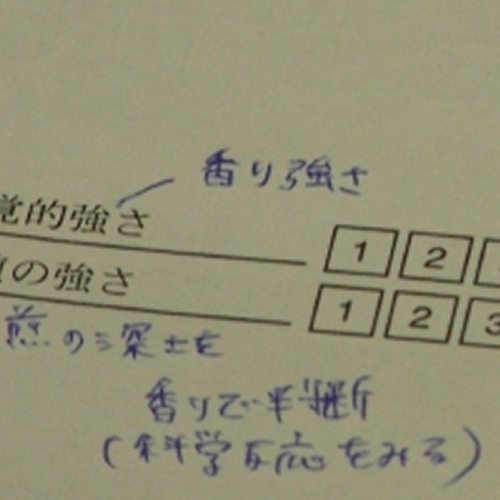 香り強さ
覚的強さ 1 2
の強さ 1 2 3
煎の深さを
香りで判断
(科学反応をみる)